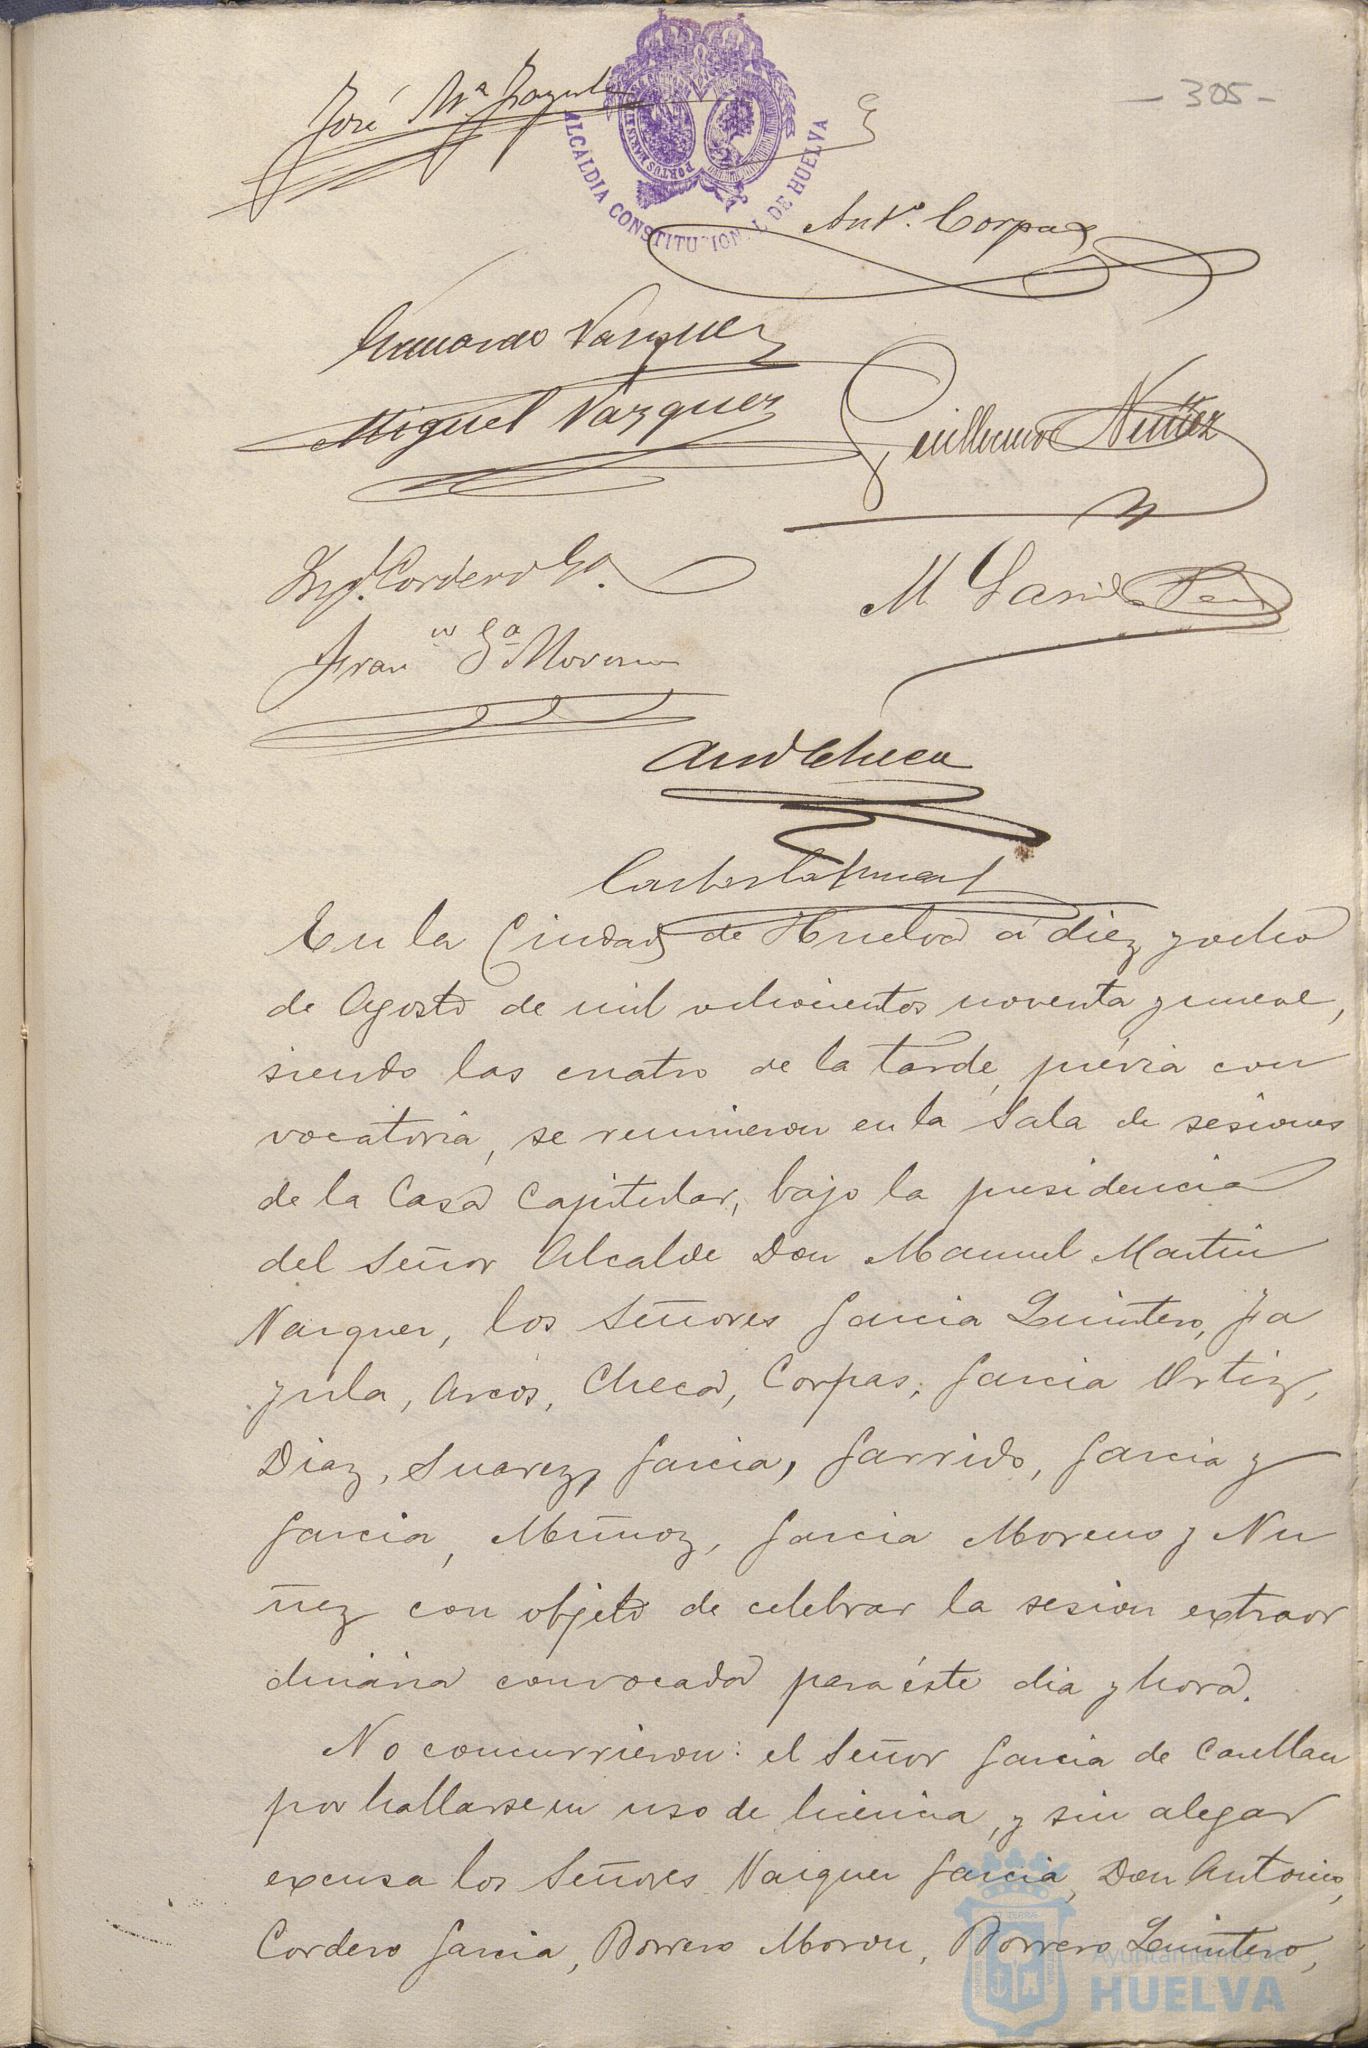 - 305 -
José Mª Jazula
ALCALDIA CONSTITUCIONAL DE HUELVA
PORTUS MARIS
Antº. Corpas
Vazquez
Miguel Vazquez
Guillermo Nuñez
Cordero Gª.
M Garrido
Franco Gª Moreno
And Checa
En la Ciudad de Huelva á diez y ocho
de Agosto de mil ochocientos noventa y nueve,
siendo las cuatro de la tarde, prévia con
vocatoria, se reunieron en la Sala de sesiones
de la Casa Capitular, bajo la presidencia
del Señor Alcalde Don Manuel Martin
Vazquez, los Señores Garcia Quintero, Ja
zula, Arcos, Checa, Corpas, Garcia Ortiz,
Diaz, Suarez, Garcia, Garrido, Garcia y
Garcia, Muñoz, Garcia Moreno y Nu
ñez con objeto de celebrar la sesion extraor
dinaria convocada para éste dia y hora.
No concurrieron: el Señor Garcia de
por hallarse en uso de licencia, y sin alegar
excusa los Señores Vazquez Garcia, Don Antonio,
Cordero Garcia, Borrero Moron, Borrero Quintero,
Ayuntamiento de
HUELVA